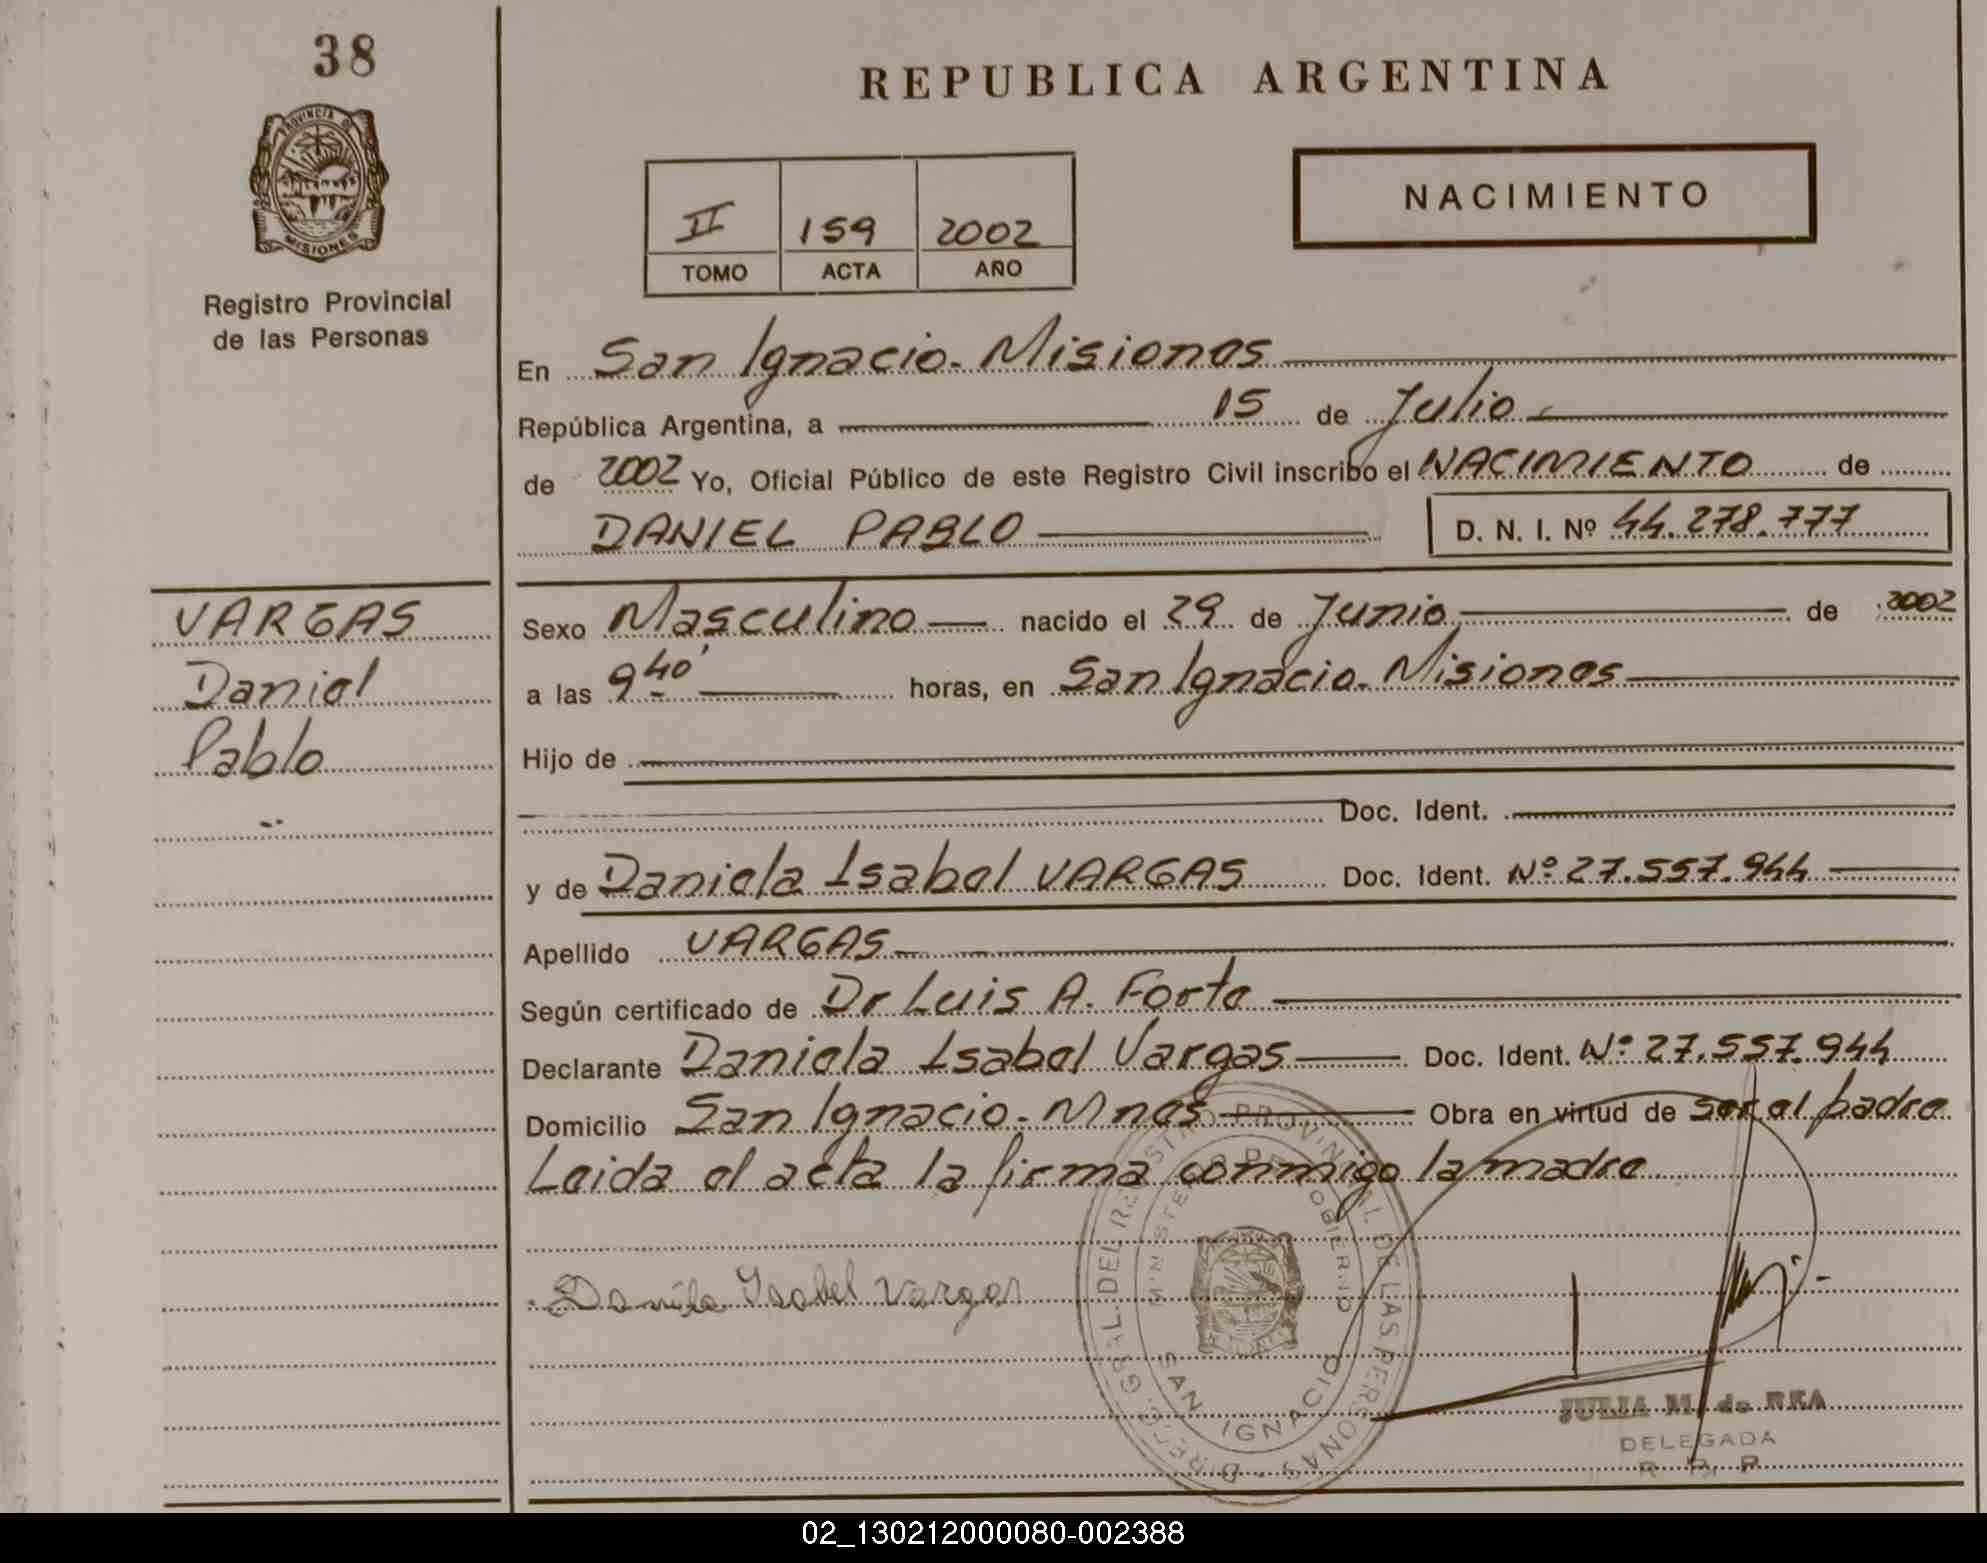 38
REPUBLICA ARGENTINA
PROVINCIA DE
MISIONES
Registro Provincial
de las Personas
II 159 2002
TOMO ACTA AÑO
NACIMIENTO
En San Ignacio - Misiones
República Argentina, a 15 de Julio
de 2002 Yo, Oficial Público de este Registro Civil inscribo el NACIMIENTO de
DANIEL PABLO D. N. I. Nº 44.278.777
VARGAS
Daniel
Pablo
Sexo Masculino nacido el 29 de Junio de 2002
a las 9 40' horas, en San Ignacio - Misiones
Hijo de
Doc. Ident.
y de Daniela Isabel VARGAS Doc. Ident. Nº 27.557.944
Apellido VARGAS
Según certificado de Dr Luis A. Forte
Declarante Daniela Isabel Vargas Doc. Ident. Nº 27.557.944
Domicilio San Ignacio - Mnes Obra en virtud de ser el padre
Leida el acta la firma conmigo la madre
Daniela Isabel Vargas
DIRECC. GRAL. DEL REGISTRO PROVINCIAL DE LAS PERSONAS
MINISTERIO DE GOBIERNO
SAN IGNACIO
JULIA M. de REA
DELEGADA
R. P. P.
02_130212000080-002388